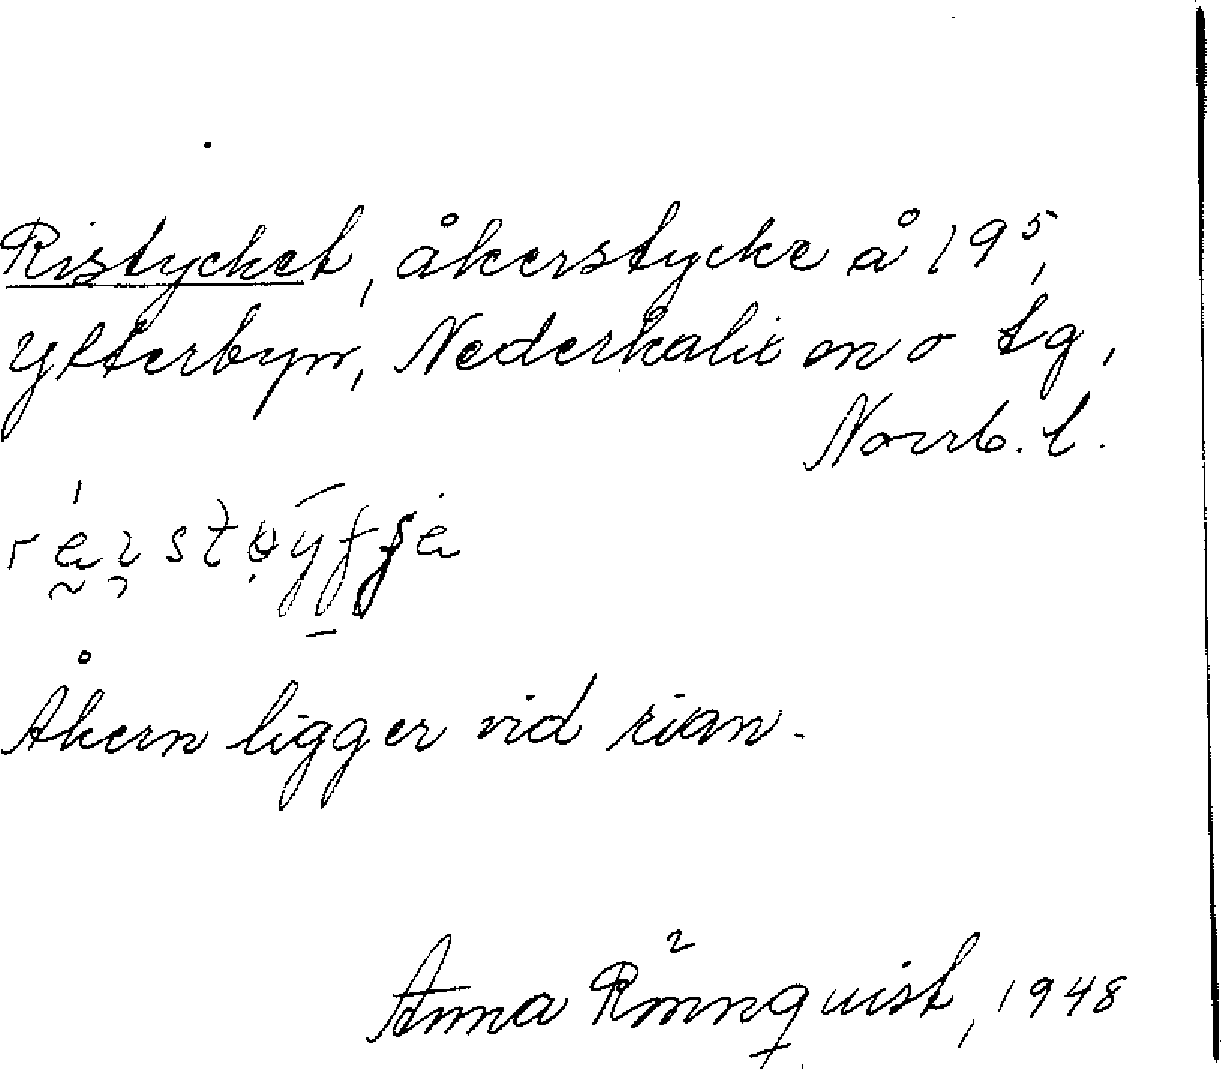 Ristycket, åkerstycke å 19⁵,
Ytterbyn, Nederkalix mo tg,
Norrb. l.
Åkern ligger vid rian.
Anna Rönnquist, 1948